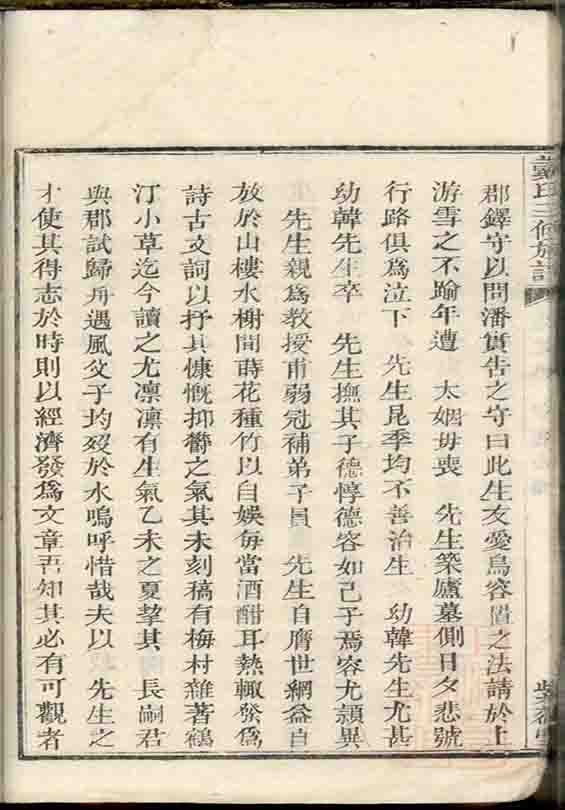 氏三修族譜
郡鐸守以問潘實告之守曰此生友愛烏容置之法請於上
游雪之不踰年遭 太姻母喪 先生築廬墓側日夕悲號
行路俱爲泣下 先生昆季均不善治生 幼韓先生尤甚
幼韓先生卒 先生撫其子德惇德容如己子焉容尤穎異
先生親爲教授甫弱冠補弟子員 先生自膺世網益自
放於山樓水榭間蒔花種竹以自娛每當酒酣耳熱輙發爲
詩古文詞以抒其慷慨抑鬱之氣其未刻稿有梅村雜著鶴
汀小草迄今讀之尤凛凛有生氣乙未之夏挈其 長嗣君
與郡試歸舟遇風父子均歿於水嗚呼惜哉夫以 先生之
才使其得志於時則以經濟發爲文章吾知其必有可觀者